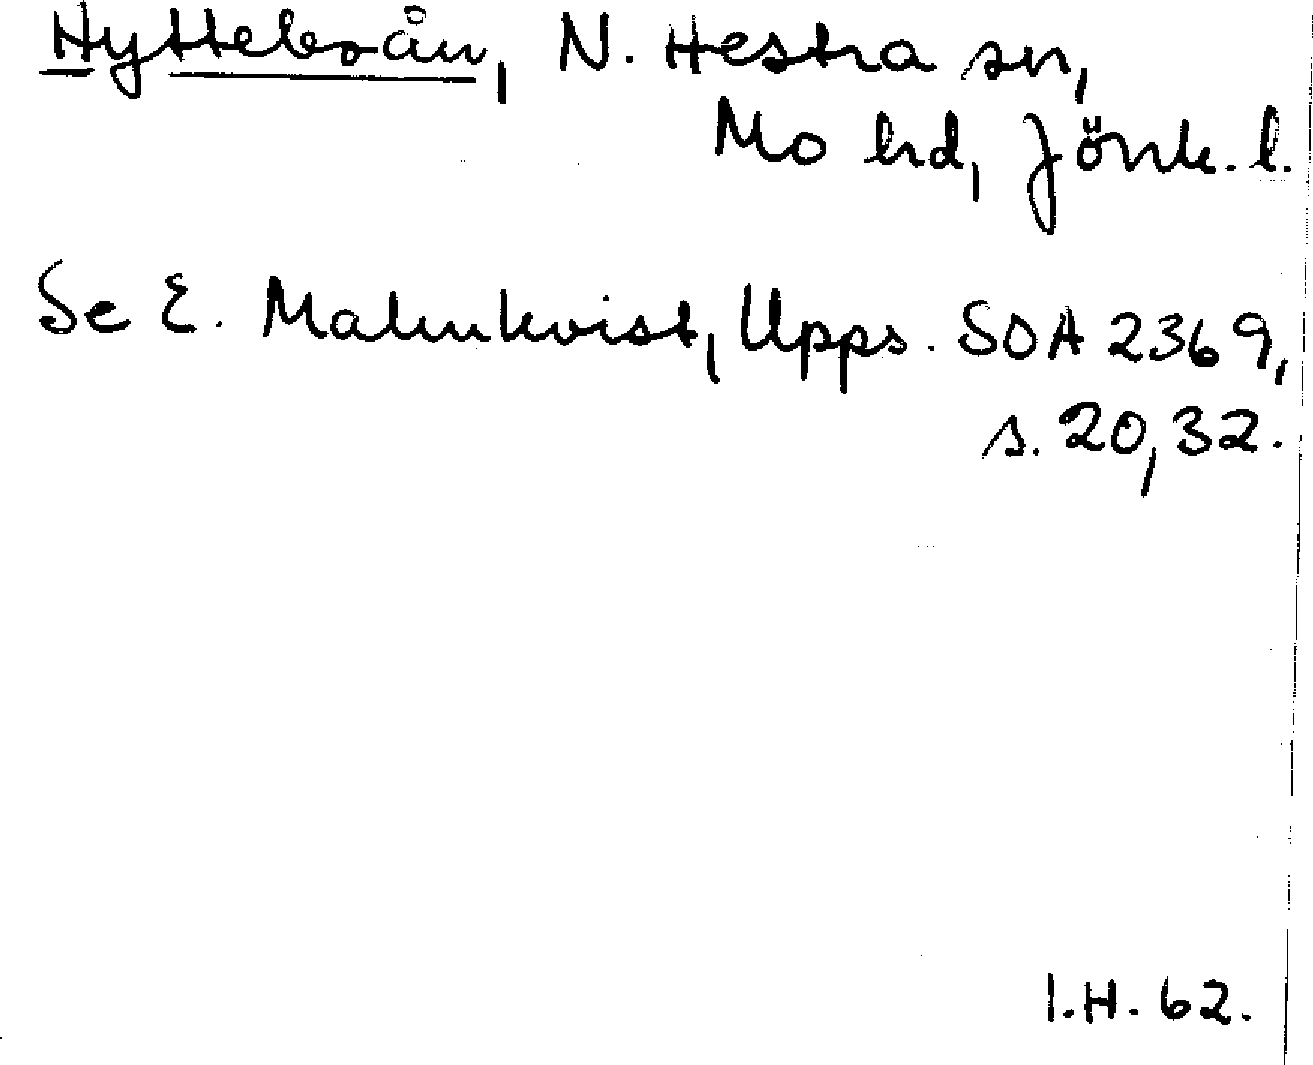 Hytteboån, N. Hestra sn,
Mo hd, Jönk. l.
Se E. Malmkvist, Upps. SOA 2369,
s. 20, 32.
I.H. 62.